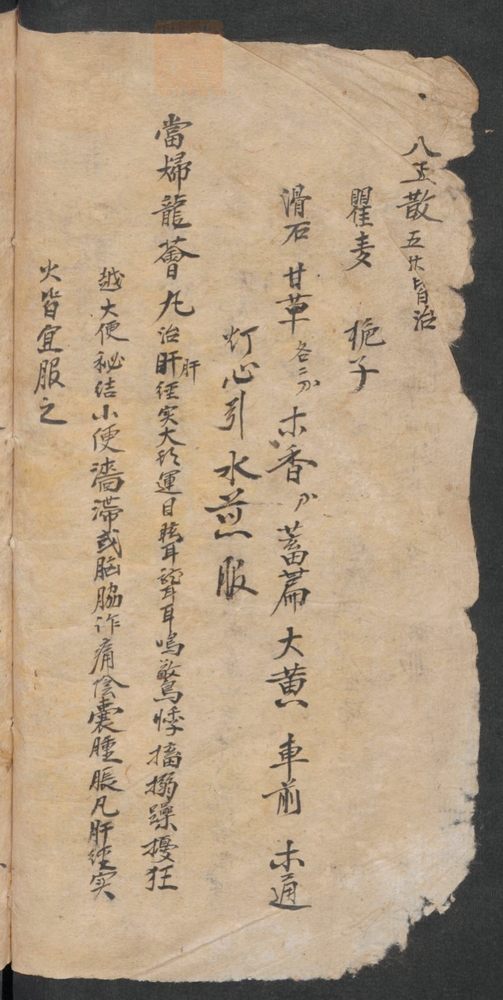 八正散 五淋皆治
瞿麦 梔子
滑石 甘草 各二分 木香 分 萹蓄 大黄 車前 木通
灯心引水煎服
當歸龍薈丸 治肝経実火頭運目眩耳聾耳鳴驚悸搐搦躁擾狂
越大便秘結小便濇滞或胸脇作痛陰囊腫脹凡肝経実
火皆宜服之